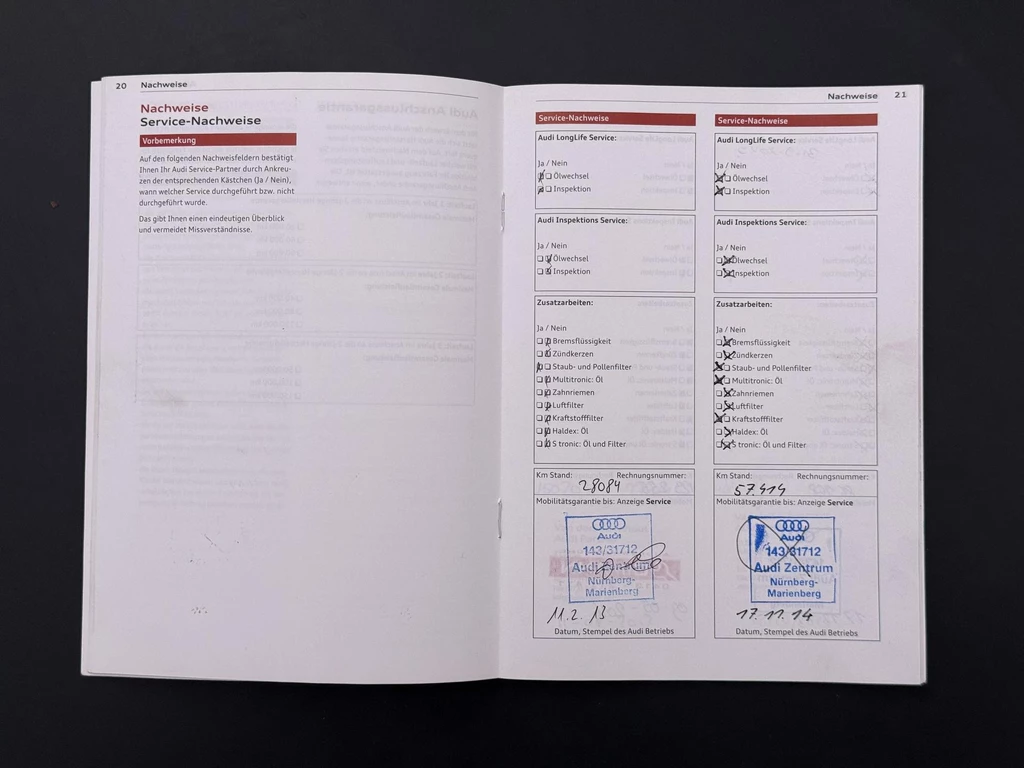 20 Nachweise
Nachweise
Service-Nachweise
Vorbemerkung
Auf den folgenden Nachweisfeldern bestätigt
Ihnen Ihr Audi Service-Partner durch Ankreu-
zen der entsprechenden Kästchen (Ja / Nein),
wann welcher Service durchgeführt bzw. nicht
durchgeführt wurde.
Das gibt Ihnen einen eindeutigen Überblick
und vermeidet Missverständnisse.
Nachweise 21
Service-Nachweise
Audi LongLife Service:
Ja / Nein
Ölwechsel
Inspektion
Audi Inspektions Service:
Ja / Nein
Ölwechsel
Inspektion
Zusatzarbeiten:
Ja / Nein
Bremsflüssigkeit
Zündkerzen
Staub- und Pollenfilter
Multitronic: Öl
Zahnriemen
Luftfilter
Kraftstofffilter
Haldex: Öl
S tronic: Öl und Filter
Km Stand: Rechnungsnummer:
28084
Mobilitätsgarantie bis: Anzeige Service
Audi
143/31712
Audi Zentrum
Nürnberg-
Marienberg
11.2.13
Datum, Stempel des Audi Betriebs
Service-Nachweise
Audi LongLife Service:
Ja / Nein
Ölwechsel
Inspektion
Audi Inspektions Service:
Ja / Nein
Ölwechsel
Inspektion
Zusatzarbeiten:
Ja / Nein
Bremsflüssigkeit
Zündkerzen
Staub- und Pollenfilter
Multitronic: Öl
Zahnriemen
Luftfilter
Kraftstofffilter
Haldex: Öl
S tronic: Öl und Filter
Km Stand: Rechnungsnummer:
57.414
Mobilitätsgarantie bis: Anzeige Service
Audi
143/31712
Audi Zentrum
Nürnberg-
Marienberg
17.11.14
Datum, Stempel des Audi Betriebs